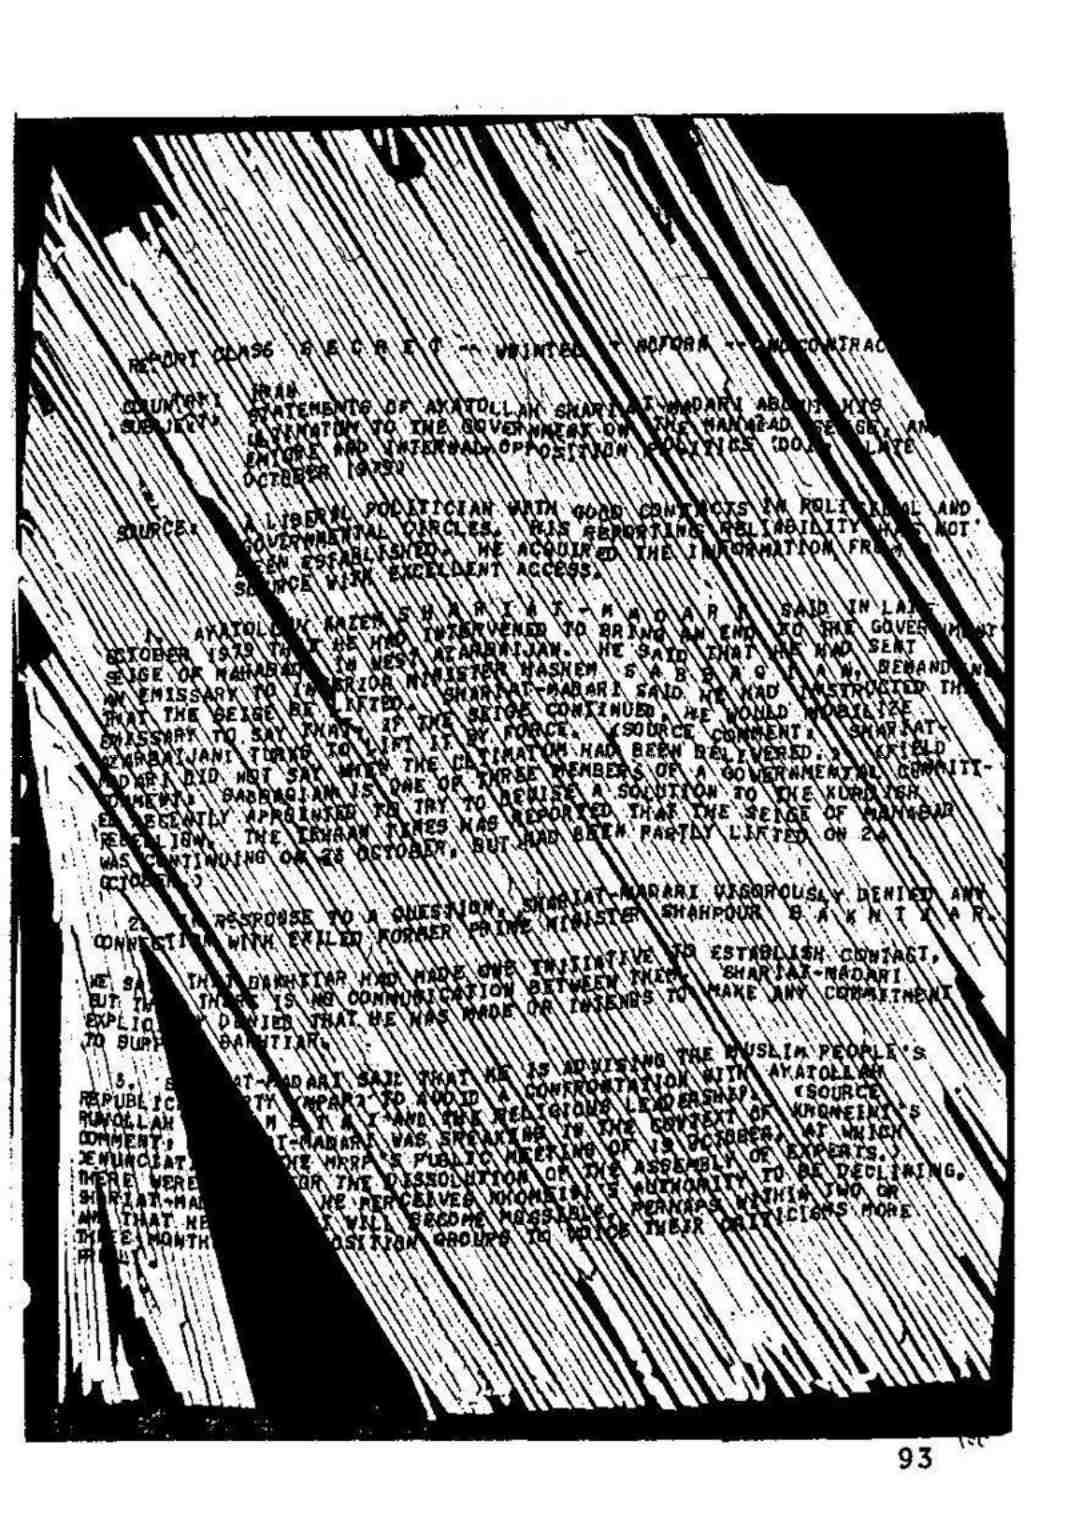 REPORT CLASS S E C R E T -- WNINTEL -- NOFORN -- NOCONTRAC
COUNTRY: IRAN
SUBJECT: STATEMENTS OF AYATOLLAH SHARIAT-MADARI ABOUT HIS
ULTIMATUM TO THE GOVERNMENT ON THE MAHABAD SEIGE, AN
EMIGRE AND INTERNAL OPPOSITION POLITICS (DOI: LATE
OCTOBER 1979)
SOURCE: A LIBERAL POLITICIAN WITH GOOD CONTACTS IN POLITICAL AND
GOVERNMENTAL CIRCLES. HIS REPORTING RELIABILITY HAS NOT
BEEN ESTABLISHED. HE ACQUIRED THE INFORMATION FROM
SOURCE WITH EXCELLENT ACCESS.
1. AYATOLLAH KAZEM S H A R I A T - M A D A R I SAID IN LATE
OCTOBER 1979 THAT HE HAD INTERVENED TO BRING AN END TO THE GOVERNMENT
SEIGE OF MAHABAD IN WEST AZARBAIJAN. HE SAID THAT HE HAD SENT
AN EMISSARY TO INTERIOR MINISTER HASHEM S A B B A G I A N, DEMANDING
THAT THE SEIGE BE LIFTED. SHARIAT-MADARI SAID HE HAD INSTRUCTED THE
EMISSARY TO SAY THAT, IF THE SEIGE CONTINUED, HE WOULD MOBILIZE
AZARBAIJANI TURKS TO LIFT IT BY FORCE. (SOURCE COMMENT: SHARIAT-
MADARI DID NOT SAY WHEN THE ULTIMATUM HAD BEEN DELIVERED.) (FIELD
COMMENT: SABBAGIAN IS ONE OF THREE MEMBERS OF A GOVERNMENTAL COMMITT-
EE RECENTLY APPOINTED TO TRY TO DEVISE A SOLUTION TO THE KURDISH
REBELLION. THE TEHRAN TIMES HAS REPORTED THAT THE SEIGE OF MAHABAD
WAS CONTINUING ON 23 OCTOBER, BUT HAD BEEN PARTLY LIFTED ON 24
OCTOBER.)
2. IN RESPONSE TO A QUESTION, SHARIAT-MADARI VIGOROUSLY DENIED ANY
CONNECTION WITH EXILED FORMER PRIME MINISTER SHAHPOUR B A K H T I A R.
HE SA THAT BAKHTIAR HAD MADE ONE INITIATIVE TO ESTABLISH CONTACT,
BUT TH THERE IS NO COMMUNICATION BETWEEN THEM. SHARIAT-MADARI
EXPLIC Y DENIED THAT HE HAS MADE OR INTENDS TO MAKE ANY COMMITMENT
TO SUPP BAKHTIAR.
3. S AT-MADARI SAID THAT HE IS ADVISING THE MUSLIM PEOPLE'S
REPUBLIC RTY (MPRP) TO AVOID A CONFRONTATION WITH AYATOLLAH
RUHOLLAH M E I N I AND THE RELIGIOUS LEADERSHIP. (SOURCE
COMMENT: AT-MADARI WAS SPEAKING IN THE CONTEXT OF KHOMEINI'S
DENUNCIAT THE MPRP'S PUBLIC MEETING OF 19 OCTOBER, AT WHICH
THERE WERE FOR THE DISSOLUTION OF THE ASSEMBLY OF EXPERTS.)
SHARIAT-MA HE PERCEIVES KHOMEINI'S AUTHORITY TO BE DECLINING,
AND THAT HE IT WILL BECOME POSSIBLE, PERHAPS WITHIN TWO OR
THREE MONTH OSITION GROUPS TO VOICE THEIR CRITICISMS MORE
93